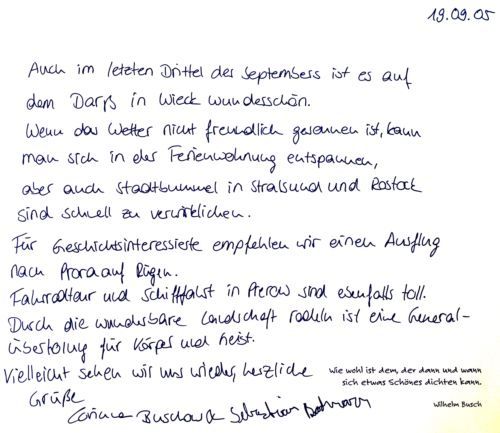 19.09.05
Auch im letzten Drittel des Septembers ist es auf
dem Darß in Wieck wunderschön.
Wenn das Wetter nicht freundlich gesonnen ist, kann
man sich in der Ferienwohnung entspannen,
aber auch Stadtbummel in Stralsund und Rostock
sind schnell zu verwirklichen.
Für Geschichtsinteressierte empfehlen wir einen Ausflug
nach Prora auf Rügen.
Fahrradtour und Schifffahrt in Prerow sind ebenfalls toll.
Durch die wunderbare Landschaft radeln ist eine General-
überholung für Körper und Geist.
Vielleicht sehen wir uns wieder, herzliche
Grüße
Sebastian
Wie wohl ist dem, der dann und wann
sich etwas Schönes dichten kann.
Wilhelm Busch